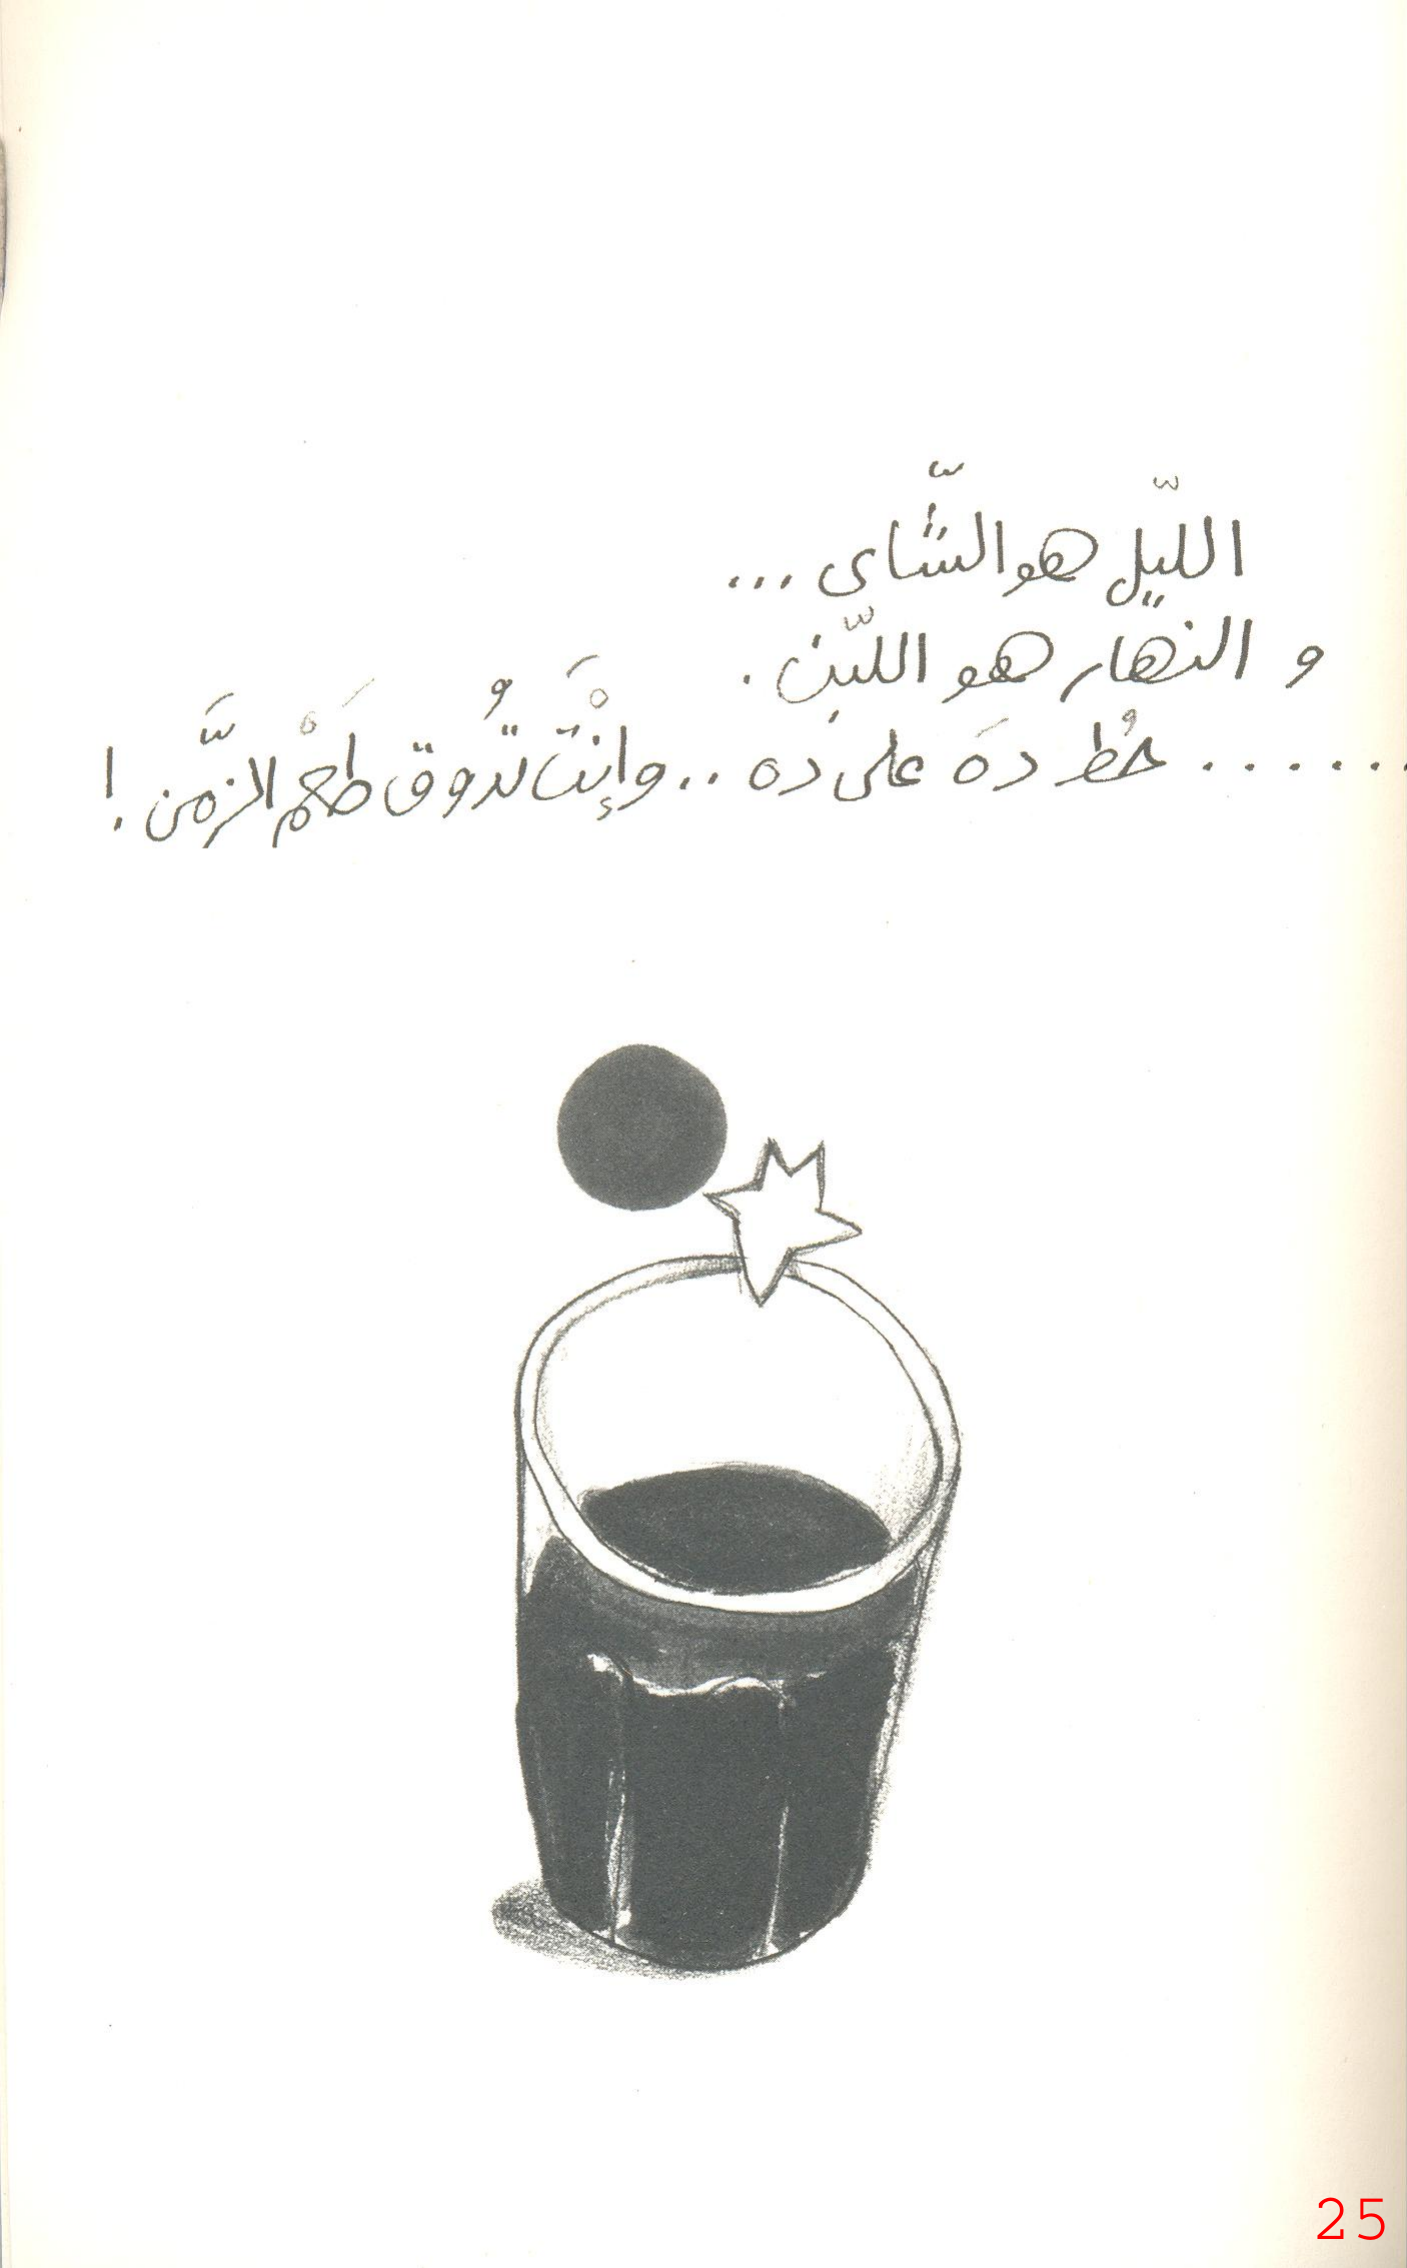 اللّيل هو الشّاى ...
و النهار هو اللّبن .
...... حُط دهَ على ده .. وإنْتَ تدُوق طَعْم الزّمَن !
25